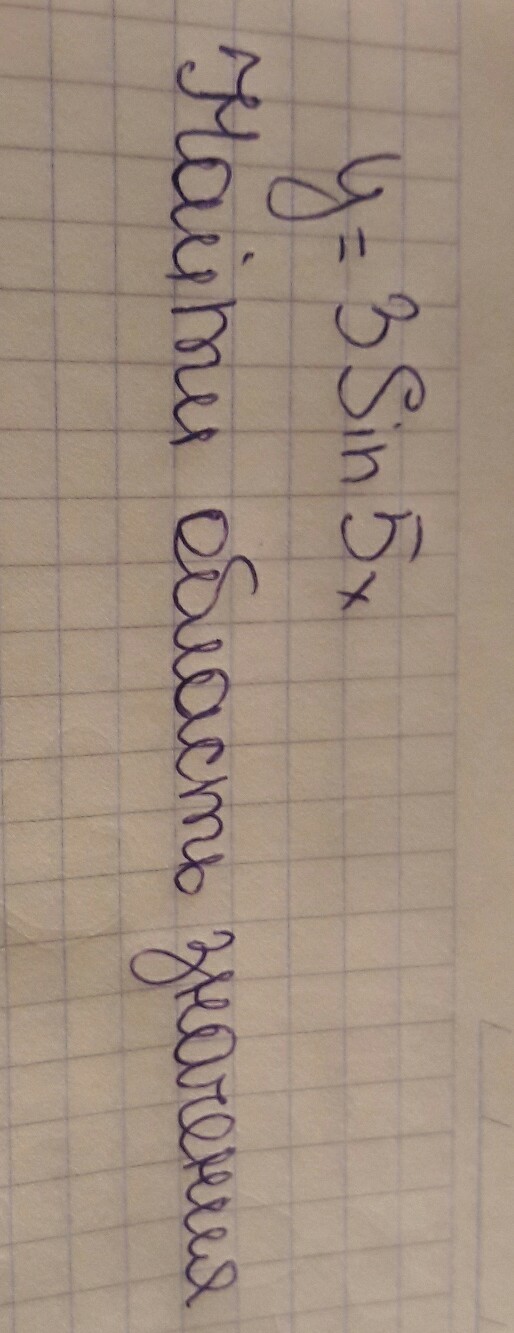 y = 3 Sin 5x
Найти область значения